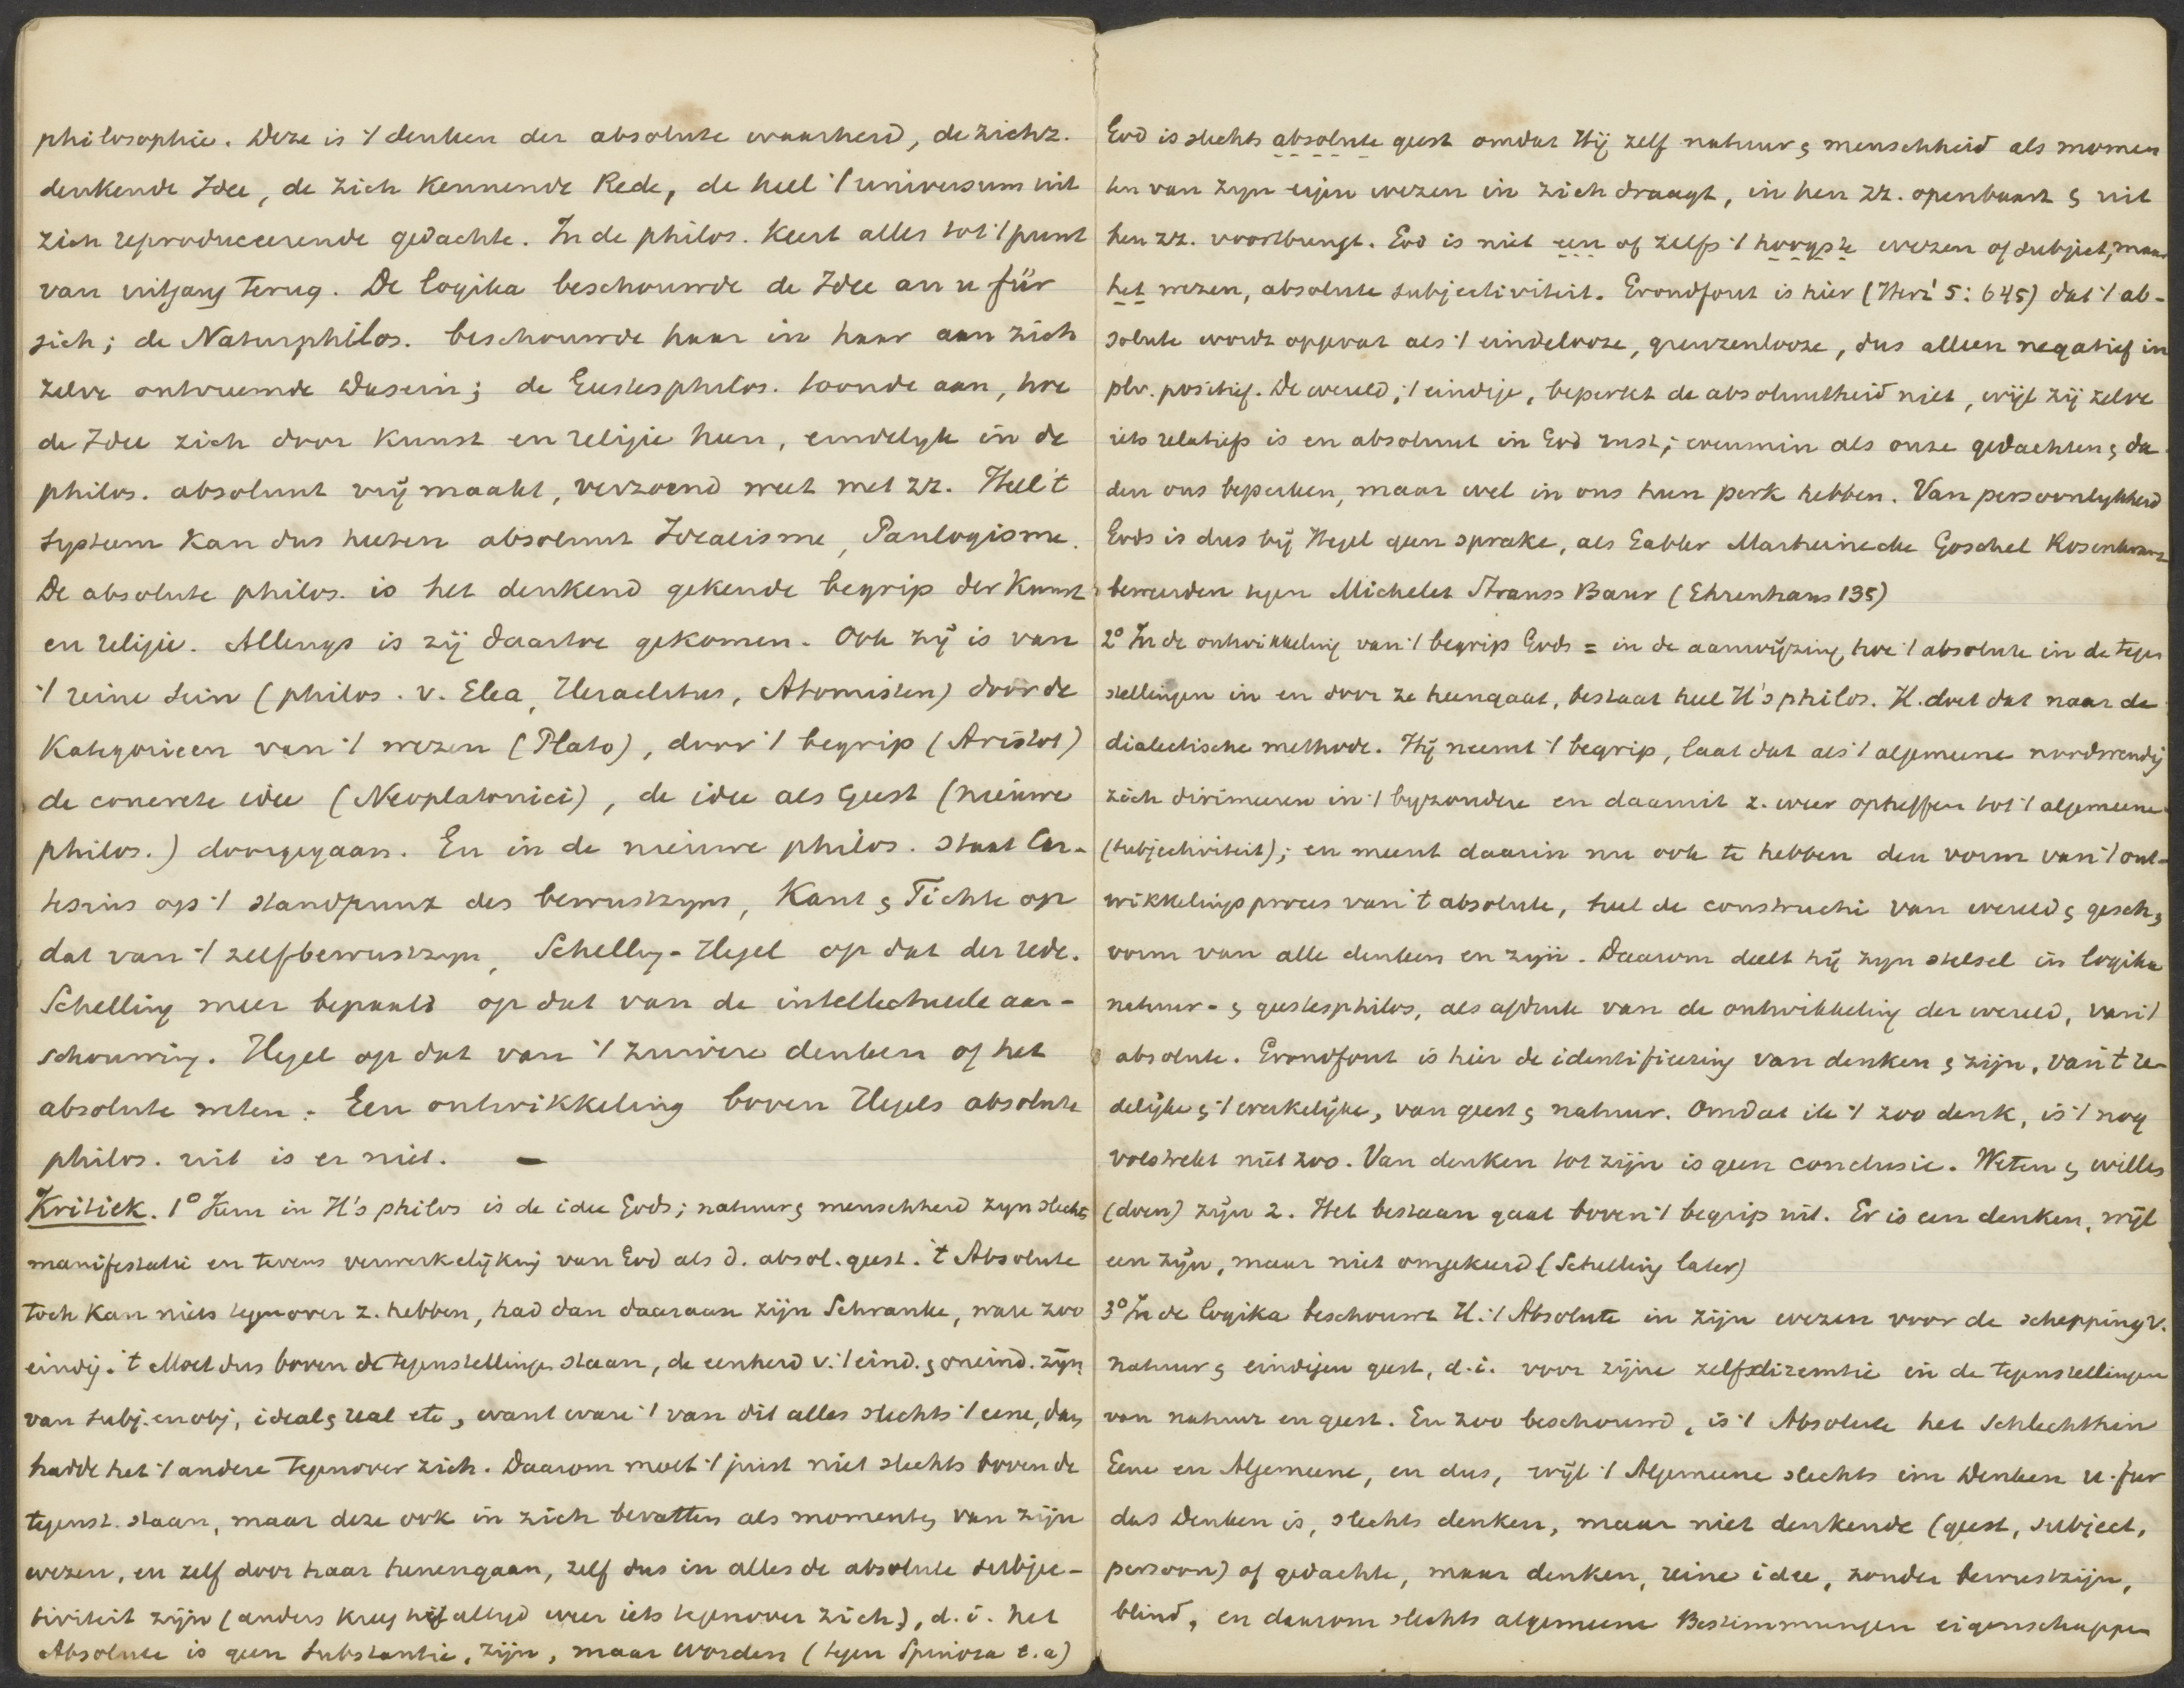 philosophie. Deze is 't denken der absolute waarheid, de zichz.
denkende Idee, de zich kennende Rede, de heel 't universum uit
zich reproduceerende gedachte. In de philos. keert alles tot 't punt
van uitgang terug. De logika beschouwde de Idee an u für
sich; de Naturphilos. beschouwde haar in haar aan zich
zelve ontvreemde Dasein; de Geistesphilos. toonde aan, hoe
de Idee zich door kunst en religie heen, eindelyk in de
philos. absoluut vrij maakt, verzoend weet met zz. Heel 't
systeem kan dus heeten absoluut Idealisme, Panlogisme.
De absolute philos. is het denkend gekende begrip der kunst
en religie. Allengs is zij daartoe gekomen. Ook zij is van
't reine sein (philos. v. Elea, Heraclitus, Atomisten) door de
Kategorieen van 't wezen (Plato), door 't begrip (Aristot)
de concrete idee (Neoplatonici), de idee als Geest (nieuwe
philos.) doorgegaan. En in de nieuwe philos. staat Car-
tesius op 't standpunt des bewustzyns, Kant & Fichte op
dat van 't zelfbewustzyn, Schelling-Hegel op dat der rede.
Schelling meer bepaald op dat van de intellectueele aan-
schouwing. Hegel op dat van 't zuivere denken of het
absolute weten. Een ontwikkeling boven Hegels absolute
philos. uit is er niet. —
Kritiek. 1° Kern in H's philos is de idee Gods; natuur & menschheid zyn slechts
manifestatie en tevens verwerkelijking van God als d. absol. geest. 't Absolute
toch kan niets tegenover z. hebben, had dan daaraan zijn Schranke, ware zoo
eindig. 't Moet dus boven de tegenstellingen staan, de eenheid v. 't eind. & oneind. zijn,
van subj. en obj, ideal & real etc, want ware 't van dit alles slechts 't eene, dan
hadde het 't andere tegenover zich. Daarom moet 't juist niet slechts boven de
tegenst. staan, maar deze ook in zich bevatten als momenten van zijn
wezen, en zelf door haar henengaan, zelf dus in alles de absolute subjec-
tiviteit zijn (anders kreeg hij altyd weer iets tegenover zich), d.i. het
Absolute is geen substantie, zijn, maar worden (tegen Spinoza e.a)
God is slechts absolute geest omdat Hij zelf natuur & menschheid als momen
ten van zyn eigen wezen in zich draagt, in hen zz. openbaart & uit
hen zz. voortbrengt. God is niet een of zelfs 't hoogste wezen of subject, maar
het wezen, absolute subjectiviteit. Grondfout is hier (Herz' 5: 645) dat 't ab-
solute wordt opgevat als 't eindelooze, grenzenlooze, dus alleen negatief in
plv. positief. De wereld, 't eindige, beperkt de absoluutheid niet, wijl zij zelve
iets relatiefs is en absoluut in God rust; evenmin als onze gedachten & da
den ons beperken, maar wel in ons hun perk hebben. Van persoonlykheid
Gods is dus bij Hegel geen sprake, als Gabler Marheinecke Goschel Rosenkranz
beweerden tegen Michelet Strauss Baur (Ehrenhaus 135)
2° In de ontwikkeling van 't begrip Gods = in de aanwijzing, hoe 't absolute in de tegen
stellingen in en door ze heengaat, bestaat heel H's philos. H. doet dat naar de
dialectische methode. Hij neemt 't begrip, laat dat als 't algemeene noodwendig
zich dirimeeren in 't byzondere en daaruit z. weer opheffen tot 't algemeene
(subjectiviteit); en meent daarin nu ook te hebben den vorm van 't ont-
wikkelingsproces van 't absolute, heel de constructie van wereld & gesch,
vorm van alle denken en zijn. Daarom deelt hij zyn stelsel in logika
natuur- & geestesphilos, als afdruk van de ontwikkeling der wereld, van 't
absolute. Grondfout is hier de identificering van denken & zijn, van 't re-
delijke & 't werkelijke, van geest & natuur. Omdat ik 't zoo denk, is 't nog
volstrekt niet zoo. Van denken tot zijn is geen conclusie. Weten & willen
(doen) zijn 2. Het bestaan gaat boven 't begrip uit. Er is een denken, wijl
een zijn, maar niet omgekeerd (Schelling later)
3° In de logika beschouwt H. 't Absolute in zijn wezen voor de schepping v.
natuur & eindigen geest, d.i. voor zijne zelfdiremtie in de tegenstellingen
van natuur en geest. En zoo beschouwd, is 't Absolute het Schlechthin
Eene en Algemeene, en dus, wijl 't Algemeene slechts im Denken u. fur
das Denken is, slechts denken, maar niet denkende (geest, subject,
persoon) of gedachte, maar denken, reine idee, zonder bewustzijn,
blind, en daarom slechts algemeene Bestimmungen eigenschappen